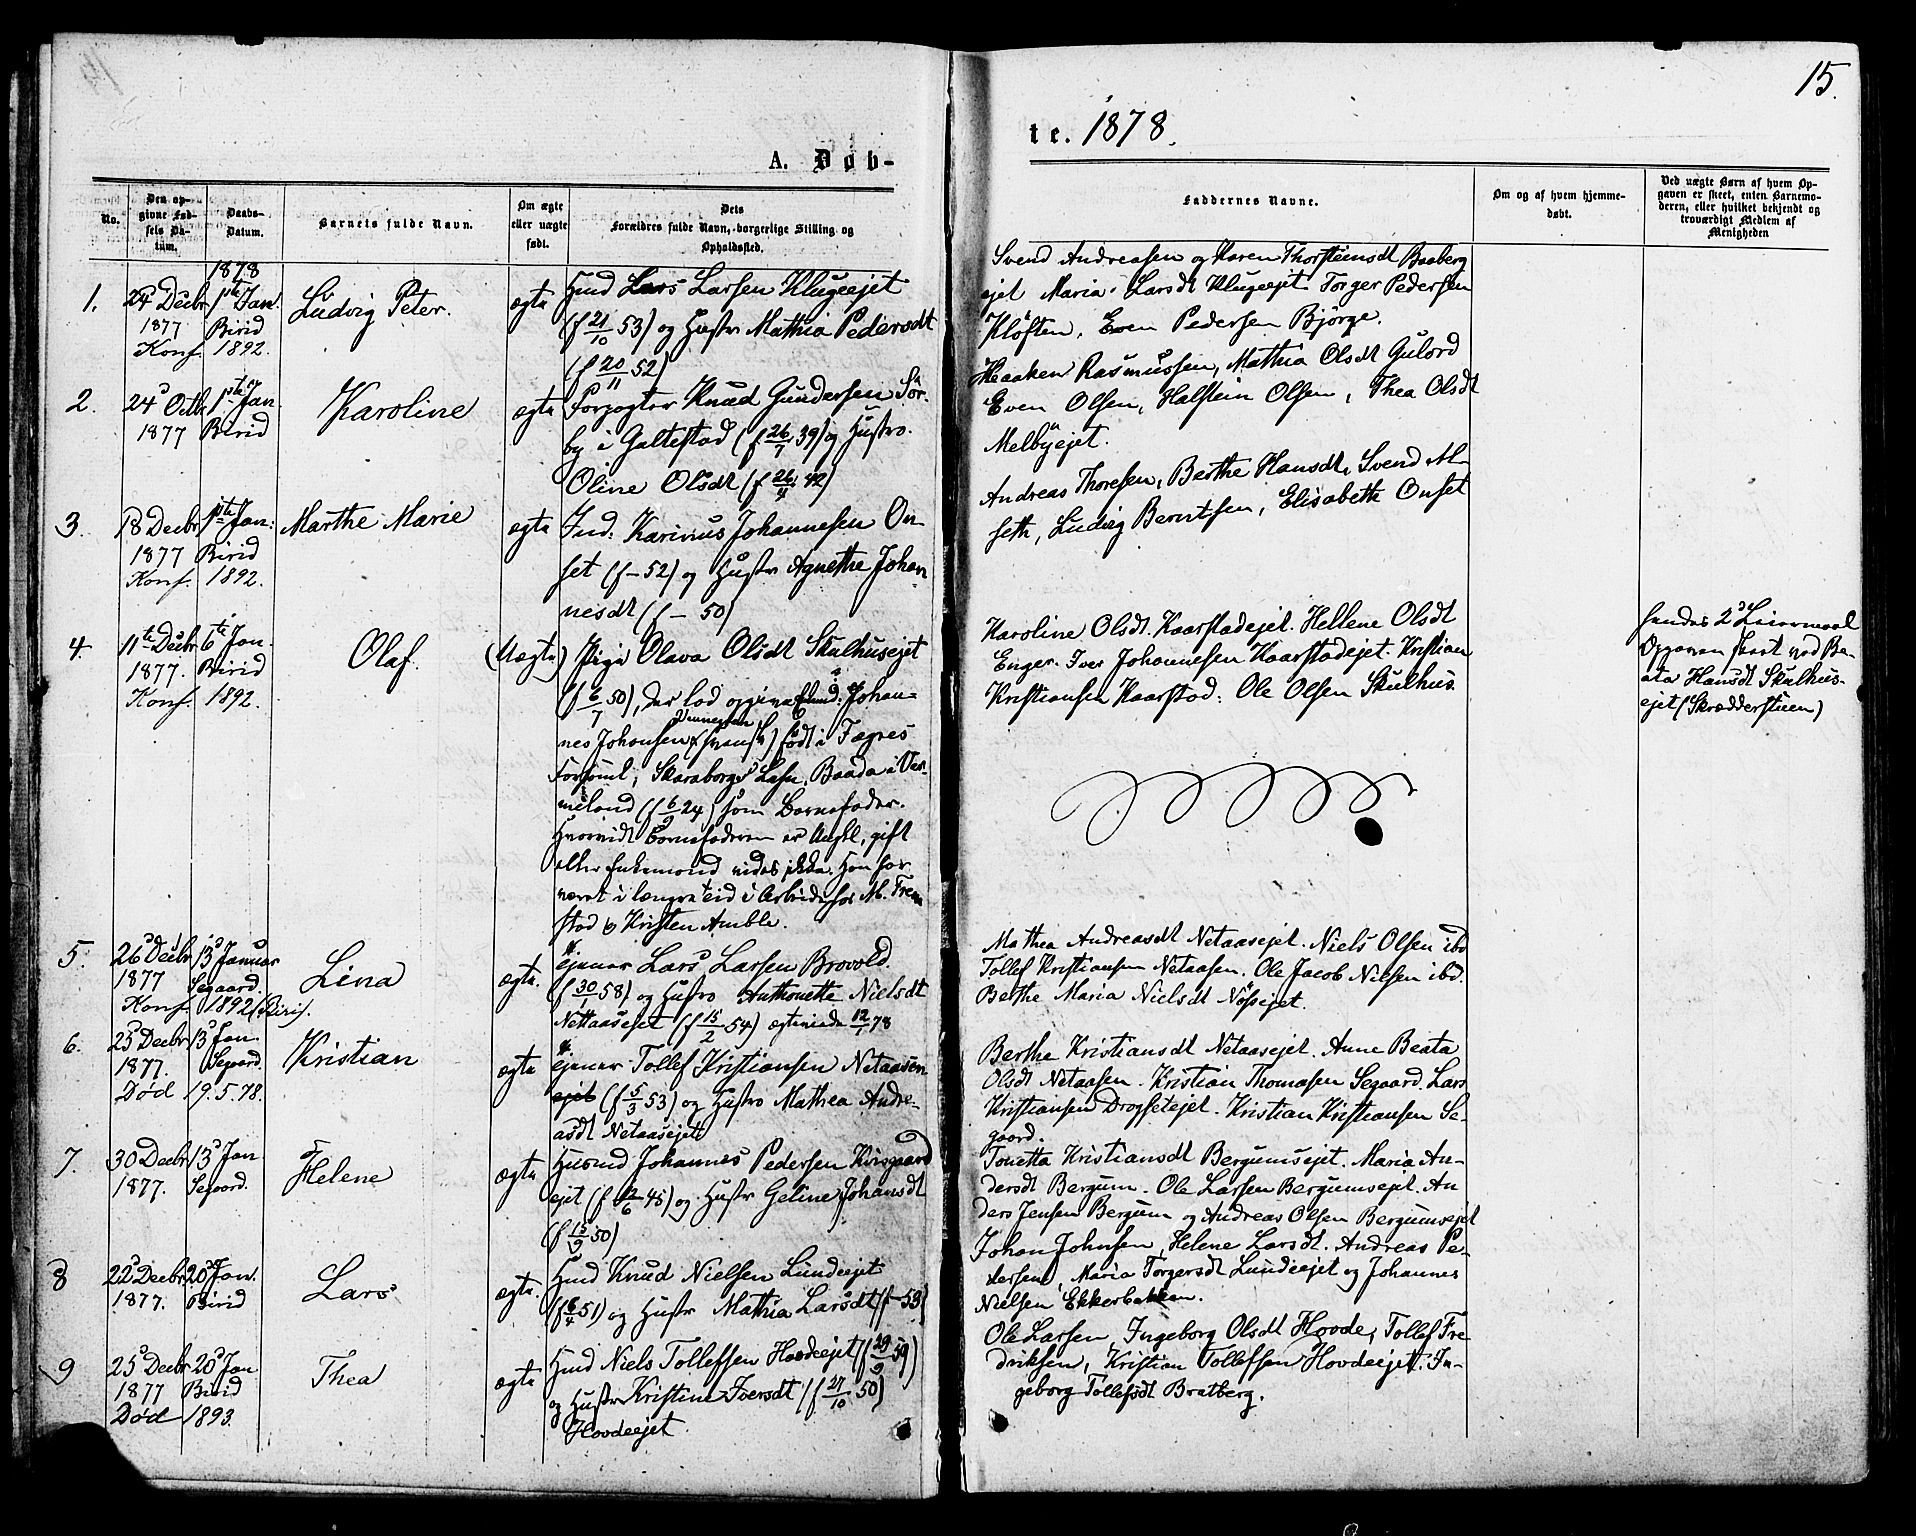 15.
A. Døb-
te. 1878.
No.
Den op-
givne Fød-
sels Da-
tum.
Daabs-
Datum.
Barnets fulde Navn.
Om ægte
eller uægte
født.
Dets
Forældres fulde Navn, borgerlige Stilling og
Opholdssted.
Faddernes Navne.
Om og af hvem hjemme-
døbt.
Ved uægte Børn af hvem Op-
gaven er skeet, enten Barnemo-
deren, eller hvilket bekjendt og
troværdigt Medlem af
Menigheden
1878
1.
24 Decbr
1877
Konf. 1892.
1ste Jan.
Birid
Ludvig Peter.
ægte
Hmd Lars Larsen Klugeejet
(f 21/10 53) og Hustr Mathia Pedersdt
(f 20/11 52)
Svend Andreasen og Karen Thorsteinsdt Baaberg
ejet Maria Larsdt Klugeejet Torger Pedersen
Kløften, Even Pedersen Bjørge.
2.
24 Octb
1877
1ste Jan.
Birid
Karoline
ægte
Forpagter Knud Gundersen Sør-
by i Galtestad (f 26/7 39) og Hustro.
Oline Olsdt (f 26/4 42)
Haaken Rasmussen, Mathia Olsdt Gulord
Even Olsen, Halstein Olsen, Thea Olsdt
Melbyejet.
3.
18 Decbr
1877
Konf. 1892.
1ste Jan:
Birid
Marthe Marie
ægte
Ind: Karinus Johannesen On-
set (f - 52) og Hustr Agnethe Johan
nesdt (f - 50)
Andreas Thoresen, Berthe Hansdt, Svend Al-
seth, Ludvig Berntsen, Elisabeth Onset
4.
11te Decbr
1877.
Konf. 1892.
6te Jan.
Birid
Olaf.
(Uægte)
Pige Olava Olsdt Skulhusejet
(f 6/7 50), der lod opgive Emd: Johan-
nes Johansen (svensk) født i Fægres
Forsml, Skaraborgs Læhn, Boada i Ver-
meland (f 6/9 24) som Barnefader.
Hvorvidt Barnefaderen er Ungkl, gift
eller Enkemand vides ikke. Han har
været i længre tid i Arbeide hos M. Frem
stad & Kristen Amble.
Karoline Olsdt. Kaarstadejet. Hellene Olsdt
Enger. Iver Johannesen Kaarstadejet. Kristian
Kristiansen Kaarstad: Ole Olsen Skulhus.
hendes 2d Leiermaal
Opgaven skeet ved Be-
ate Hansdt Skulhus-
ejet (Skrædderstuen)
5.
26 Decbr
1877
Konf. 1892 (Biri).
13d Januar
Segaard.
Lina
ægte.
Gejener Lars Larsen Brovold.
(f 30/ 58) og Hustro Anthonette Nielsdt
Nettaasejet (f 15/2 54) ægteviede 12/1 78
Mathea Andreasdt Netaasejet. Niels Olsen ibd
Tollef Kristiansen Netaasen. Ole Jacob Nilsen ibd.
Berthe Maria Nielsdt Nøssejet.
6.
25 Decbr
1877.
Død 19.5.78.
13d Jan.
Segaard.
Kristian
ægte
Gejener Tollef Kristiansen Netaasen
ejet (f 5/3 53) og Hustro Mathea Andre-
asdt Netaasejet
Berthe Kristiansdt Netaasejet. Anne Beata
Olsdt Netaasen. Kristian Thomasen Segaard. Lars
Kristiansen Drogsetejet. Kristian Kristiansen Se-
gaard.
7.
30 Decbr
1877.
13d Jan
Segaard.
Helene
ægte
Husmd Johannes Pedersen Kvisgaard
ejet (f 12/6 45) og Hustr Geline Johansdt
(f 15/9 50)
Tonetta Kristiansdt Bergumsejet. Maria An-
dersdt Bergum. Ole Larsen Bergumsejet. An
ders Jensen Bergum og Andreas Olsen Bergumsejet
8
22d Decbr
1877.
20d Jan.
Birid
Lars
ægte.
Hmd Knud Nielsen Lundeejet
(f 6/4 51) og Hustr Mathia Larsdt (f - 53)
Johan Johnsen, Helene Larsdt. Andreas Pe-
dersen, Maria Torgersdt Lundeejet og Johannes
Nielsen Ekkerbakken.
9
25d Decbr
1877
Død 1893.
20d Jan
Birid
Thea
ægte
Hmd Niels Tollefsen Hovdeejet (f 29/9 59)
og Hustr Kristine Iversdt (f 27/10 50)
Hovdeejet.
Ole Larsen, Ingeborg Olsdt Hovde, Tollef Fre
driksen, Kristian Tollefsen Hovdeejet. In-
geborg Tollefsdt Bratberg.